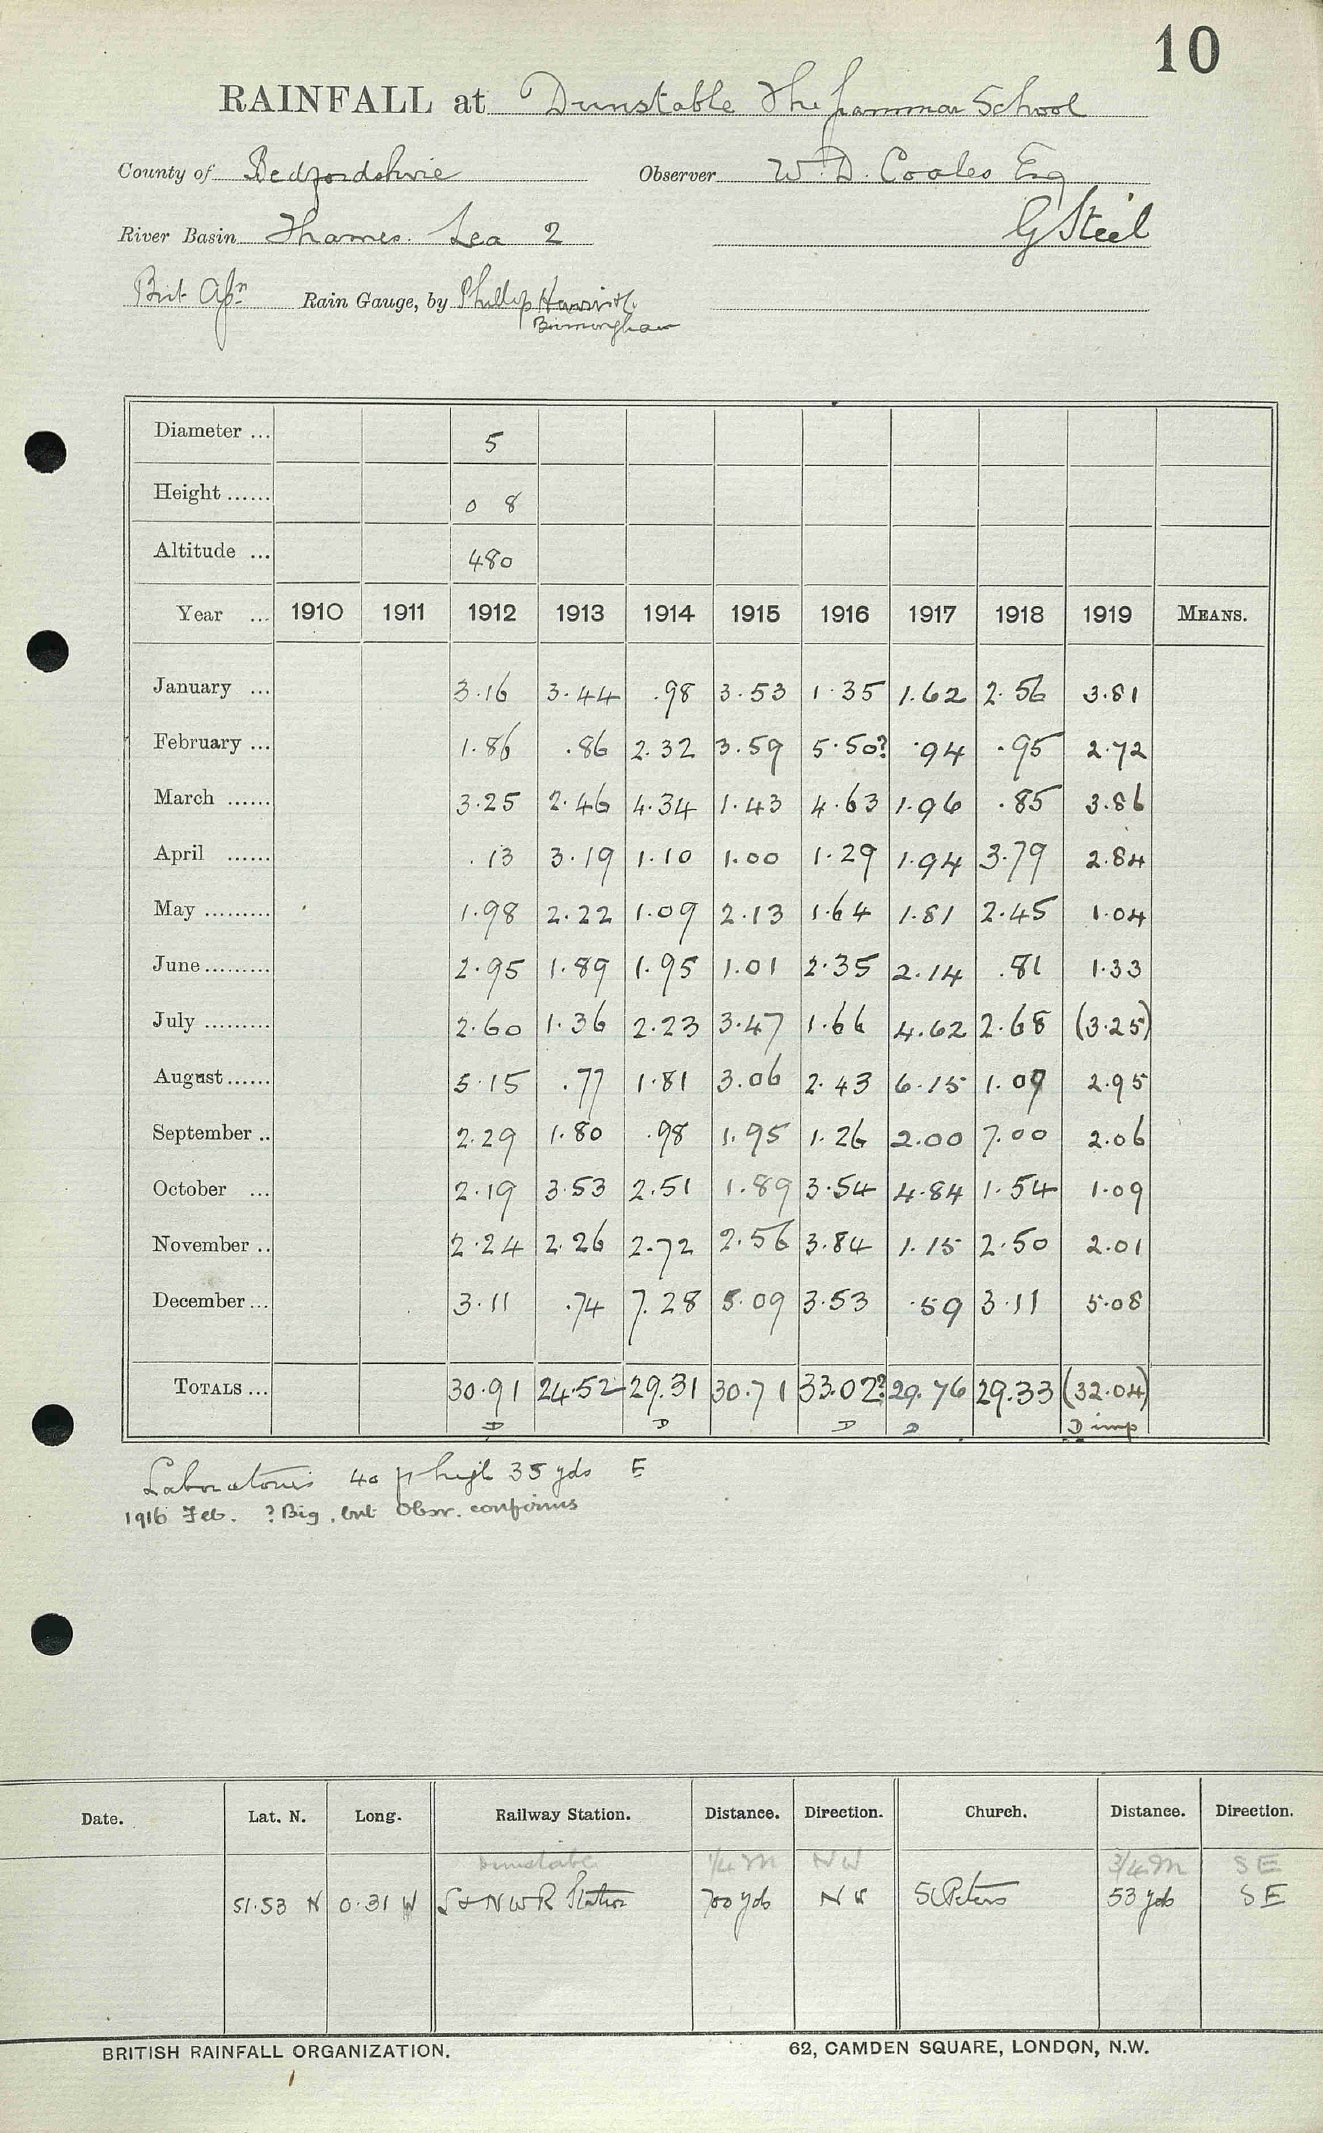 10
RAINFALL at Dunstable The Grammar School
County of Bedfordshire Observer W. D. Coales Esq
River Basin Thames. Lea 2 G Steel
Brit Apn Rain Gauge, by Phillip Harris
Birmingham
Diameter ... 5
Height ...... 0 8
Altitude ... 480
Year ... 1910 1911 1912 1913 1914 1915 1916 1917 1918 1919 MEANS.
January ... 3.16 3.44 .98 3.53 1.35 1.62 2.56 3.81
February ... 1.86 .86 2.32 3.59 5.50? .94 .95 2.72
March ...... 3.25 2.46 4.34 1.43 4.63 1.96 .85 3.86
April ...... .13 3.19 1.10 1.00 1.29 1.94 3.79 2.84
May ......... 1.98 2.22 1.09 2.13 1.64 1.81 2.45 1.04
June ......... 2.95 1.89 1.95 1.01 2.35 2.14 .81 1.33
July ......... 2.60 1.36 2.23 3.47 1.66 4.62 2.68 (3.25)
August ...... 5.15 .77 1.81 3.06 2.43 6.15 1.09 2.95
September .. 2.29 1.80 .98 1.95 1.26 2.00 7.00 2.06
October ... 2.19 3.53 2.51 1.89 3.54 4.84 1.54 1.09
November .. 2.24 2.26 2.72 2.56 3.84 1.15 2.50 2.01
December ... 3.11 .74 7.28 5.09 3.53 .59 3.11 5.08
TOTALS ... 30.91 24.52 29.31 30.71 33.02? 29.76 29.33 (32.04)
D D D D D imp
Laboratories 40 ft high 35 yds E
1916 Feb. ? Big, but Obsr. confirms
Date. Lat. N. Long. Railway Station. Distance. Direction. Church. Distance. Direction.
Dunstable 1/4 m NW 3/4 m SE
51.53 N 0.31 W L & NWR Station 700 yds NW St Peters 53 yds SE
BRITISH RAINFALL ORGANIZATION. 62, CAMDEN SQUARE, LONDON, N.W.